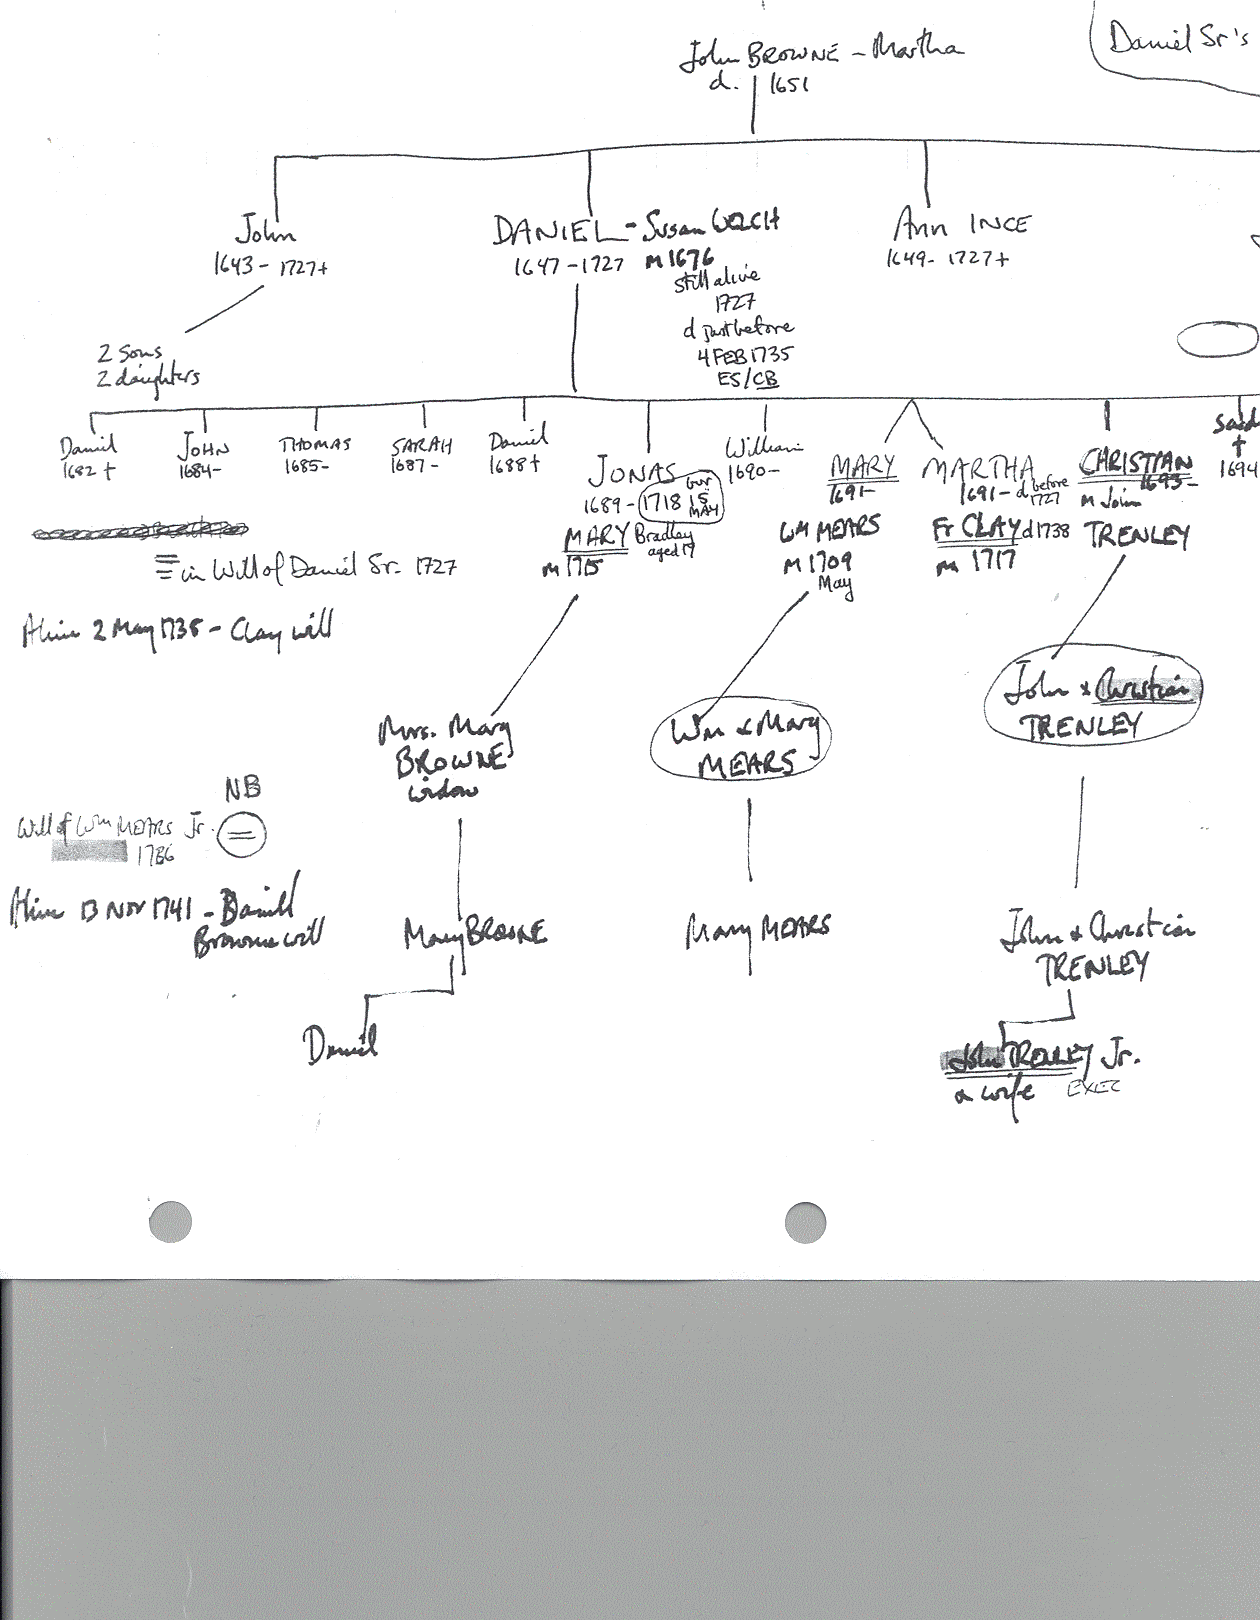 John BROWNE - Martha
d. 1651
Daniel Sr's
John
1643 - 1727+
DANIEL - Susan WELCH
1647 - 1727 m 1676
still alive
1727
d just before
4 FEB 1735
ES/CB
Ann INCE
1649 - 1727+
2 sons
2 daughters
Daniel
1682 +
JOHN
1684-
THOMAS
1685-
SARAH
1687-
Daniel
1688+
JONAS
1689 - 1718 bur 15 MAY
MARY Bradley
aged 17
m 1715
William
1690-
MARY
1691-
WM MEARS
m 1709
May
MARTHA
1691- d before
1727
Fr CLAY d 1738
m 1717
CHRISTIAN
1693-
m John
TRENLEY
+
1694
= in Will of Daniel Sr. 1727
Alive 2 May 1738 - Clay will
Mrs. Mary
BROWNE
widow
Wm & Mary
MEARS
John & Christian
TRENLEY
NB
Will of Wm MEARS Jr. =
1786
Alive 13 Nov 1741 - Daniell
Browne will
Mary BROWNE
Mary MEARS
John & Christian
TRENLEY
Daniel
John TRENLEY Jr.
& wife EXEC